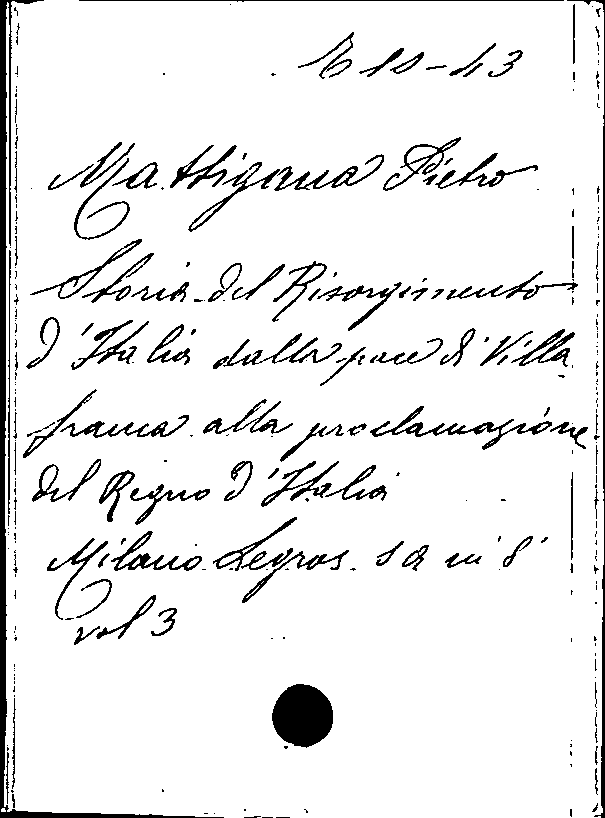 E 10-43
Mattigana Pietro
Storia del Risorgimento
d'Italia dalla pace di Villa
franca alla proclamazione
del Regno d'Italia
Milano Legros s a in 8°
vol 3